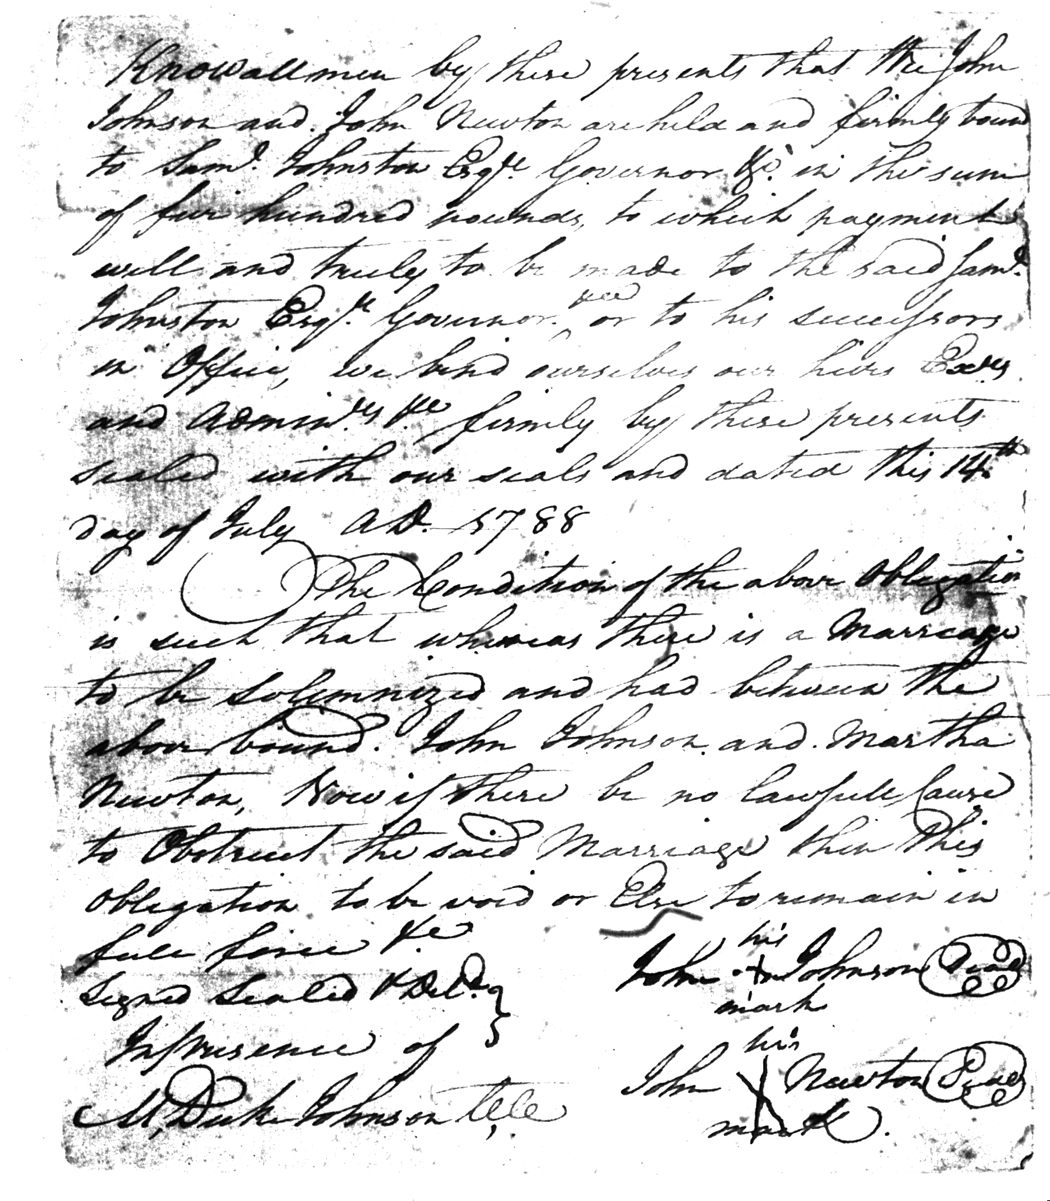 Know all men by these presents that We John
Johnson and John Newton are held and firmly bound
to Sam.l Johnston Esq.re Governor &c. in the sum
of five hundred pounds, to which payment
well and truly to be made to the said Sam.l
Johnston Esq.re Governor &ce or to his successors
in Office, we bind ourselves our heirs Exers
and Admin.rs &ce firmly by these presents
sealed with our seals and dated this 14.th
day of July AD. 1788
The Condition of the above Obligation
is such that whereas there is a Marriage
to be Solemnized and had between the
above bound. John Johnson and Martha
Newton, Now if there be no lawfull Cause
to Obstruct the said Marriage then This
Obligation to be void or Else to remain in
full force &ce
Signed Sealed & Del.d
In presence of
M, Duke Johnson
his
John Johnson Seal
mark
his
John X Newton Seal
mark.